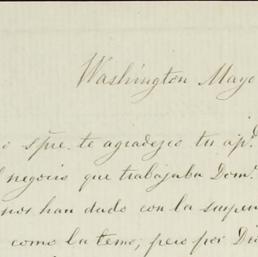 Washington Mayo
o spre. te agradezco tu ap.
l negocio que trabajaba Dom.
nos han dado con la suspen
como la temo; pero por Di